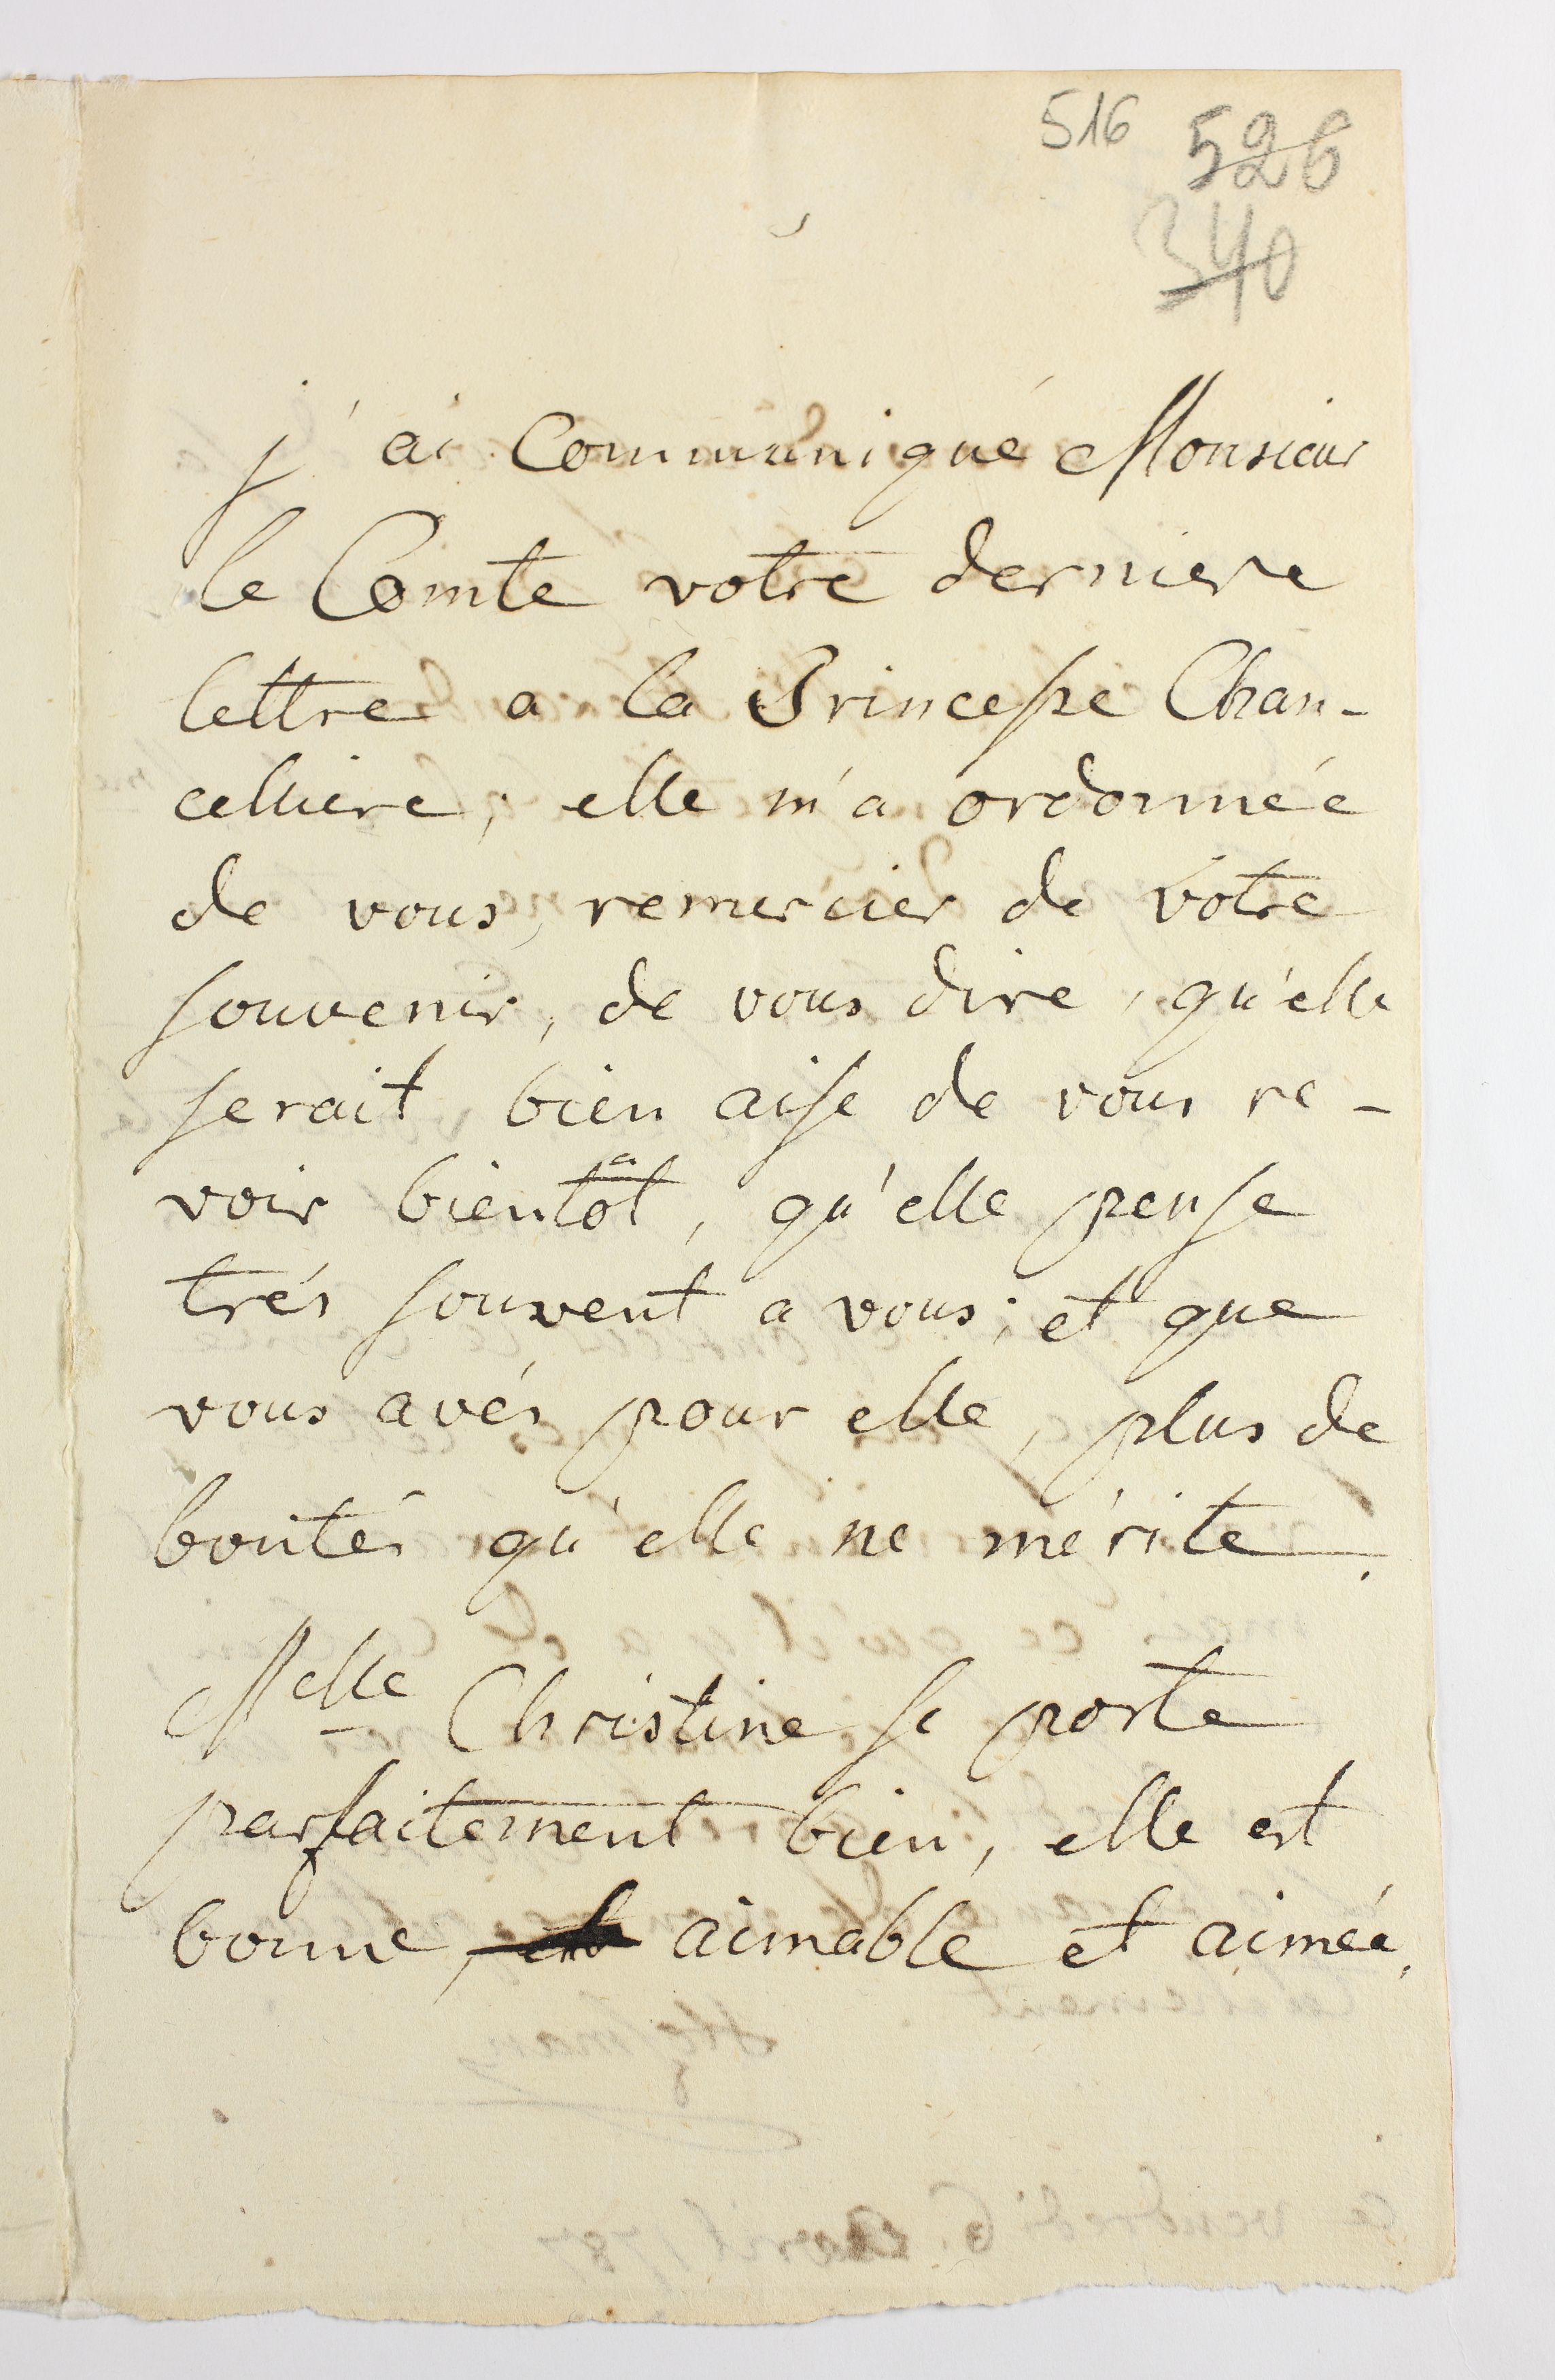 516 526
340
j'ai Communiqué Monsieur
le Comte votre derniere
lettre a la Princesse Chan-
celliere; elle m'a ordonnée
de vous, remercier de votre
souvenir, de vous dire, qu'elle
serait bien aise de vous re-
voir bientôt, qu'elle pense
trés souvent a vous; et que
vous avés pour elle, plus de
bontés qu'elle ne mérite.
Melle Christine se porte
parfaitement bien, elle est
bonne, aimable et aimée,